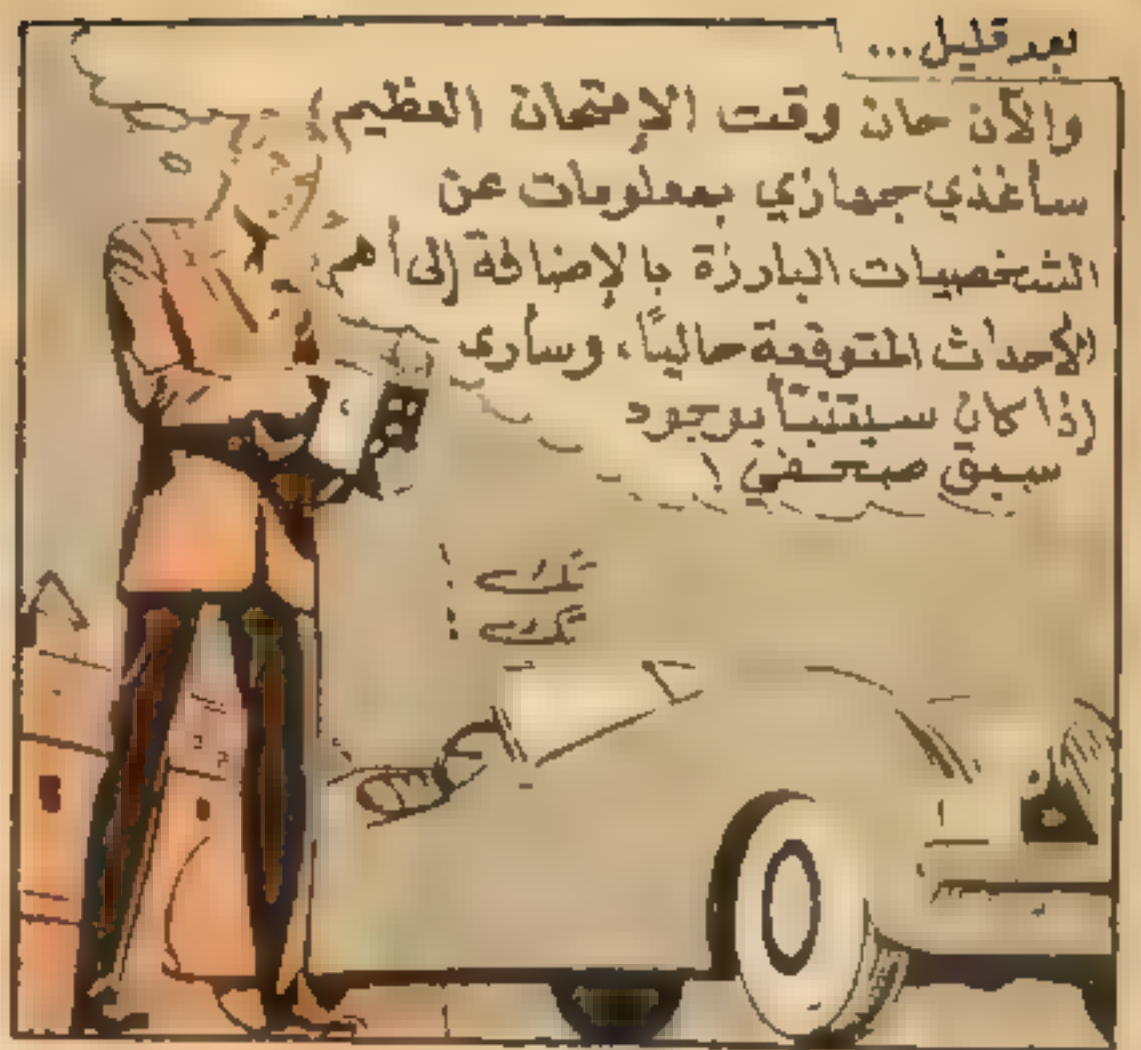 بعد قليل...
والآن حان وقت الإمتحان العظيم!
سأغذي جهازي بمعلومات عن
الشخصيات البارزة بالإضافة إلى أهم
الأحداث المتوقعة حالياً، وسأرى
إذا كان سيتنبأ بوجود
سبق صحفي!
تك!
تك!